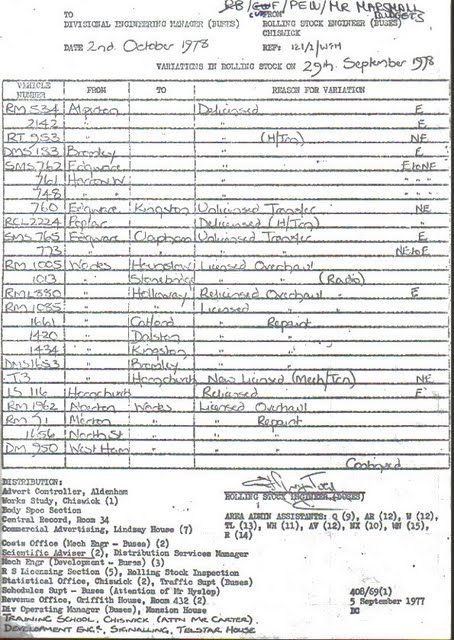 RB/GWF/PEW/MR MARSHALL
BUDGETS
TO FROM
DIVISIONAL ENGINEERING MANAGER (BUSES) ROLLING STOCK ENGINEER (BUSES)
CHISWICK
DATE 2nd October 1978 REF: 121/2/WSH
VARIATIONS IN ROLLING STOCK ON 29th September 1978
VEHICLE NUMBER FROM TO REASON FOR VARIATION
RM 534 Alperton Delicensed E
2142 " " E
RT 953 " " (H/Trn) NE
DMS 133 Bromley " E
SMS 762 Edgware " E to NE
761 Harrow W. " " " "
748 " " " " "
760 Edgware Kingston Unlicensed Transfer NE
RCL 2224 Poplar Delicensed (H/Trn) "
SMS 765 Edgware Clapham Unlicensed Transfer E
773 " " " " NE to E
RM 1005 Works Hounslow Licensed Overhaul
1013 " Stonebridge " " (Radio)
RML 880 " Holloway Relicensed Overhaul E
RM 1085 " " Licensed "
1661 " Catford " Repaint
1420 " Dalston " "
1434 " Kingston " "
DMS 1653 " Bromley " "
T.3 " Hornchurch New Licensed (Mech/Trn) NE
LS 116 Hornchurch Relicensed E
RM 1962 Norton Works Licensed Overhaul
RM 71 Merton " " Repaint
1656 North St " " "
DM 950 West Ham " " "
Continued
DISTRIBUTION:
Advert Controller, Aldenham
Works Study, Chiswick (1)
Body Spec Section
Central Record, Room 34
Commercial Advertising, Lindsay House (7)
ROLLING STOCK ENGINEER (BUSES)
AREA ADMIN ASSISTANTS: Q (9), AR (12), W (12),
TL (13), WH (11), AV (12), NX (10) WN (15),
R (14)
Costs Office (Mech Engr - Buses) (2)
Scientific Adviser (2), Distribution Services Manager
Mech Engr (Development - Buses) (3)
R S Licensing Section (5), Rolling Stock Inspection
Statistical Office, Chiswick (2), Traffic Supt (Buses)
Schedules Supt - Buses (Attention of Mr Hyslop) 408/69(1)
Revenue Office, Griffith House, Room 432 (2) 5 September 1977
Div Operating Manager (Buses), Mansion House BO
TRAINING SCHOOL, CHISWICK (ATTN MR CARTER)
DEVELOPMENT ENGR, SIGNALLING, TELSTAR HOUSE